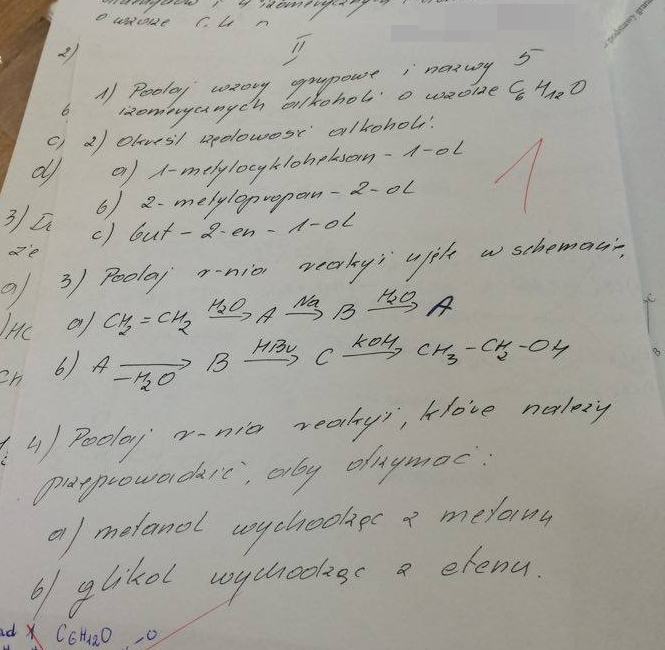 o wzorze C H
2)
II
1) Podaj wzory grupowe i nazwy 5
izomerycznych alkoholi o wzorze C6H12O
2) Określ rzędowość alkoholi:
a) 1-metylocykloheksan-1-ol
b) 2-metylopropan-2-ol
c) but-2-en-1-ol
1
3) Podaj r-nia reakcji ujęte w schemacie,
a) CH2=CH2 H2O→ A Na→ B H2O→ A
b) A -H2O→ B HBr→ C KOH→ CH3-CH2-OH
4) Podaj r-nia reakcji, które należy
przeprowadzić, aby otrzymać:
a) metanol wychodząc z metanu
b) glikol wychodząc z etenu.
b
c)
d)
3)
że
a)
HC
CH
ad C6H12O -O